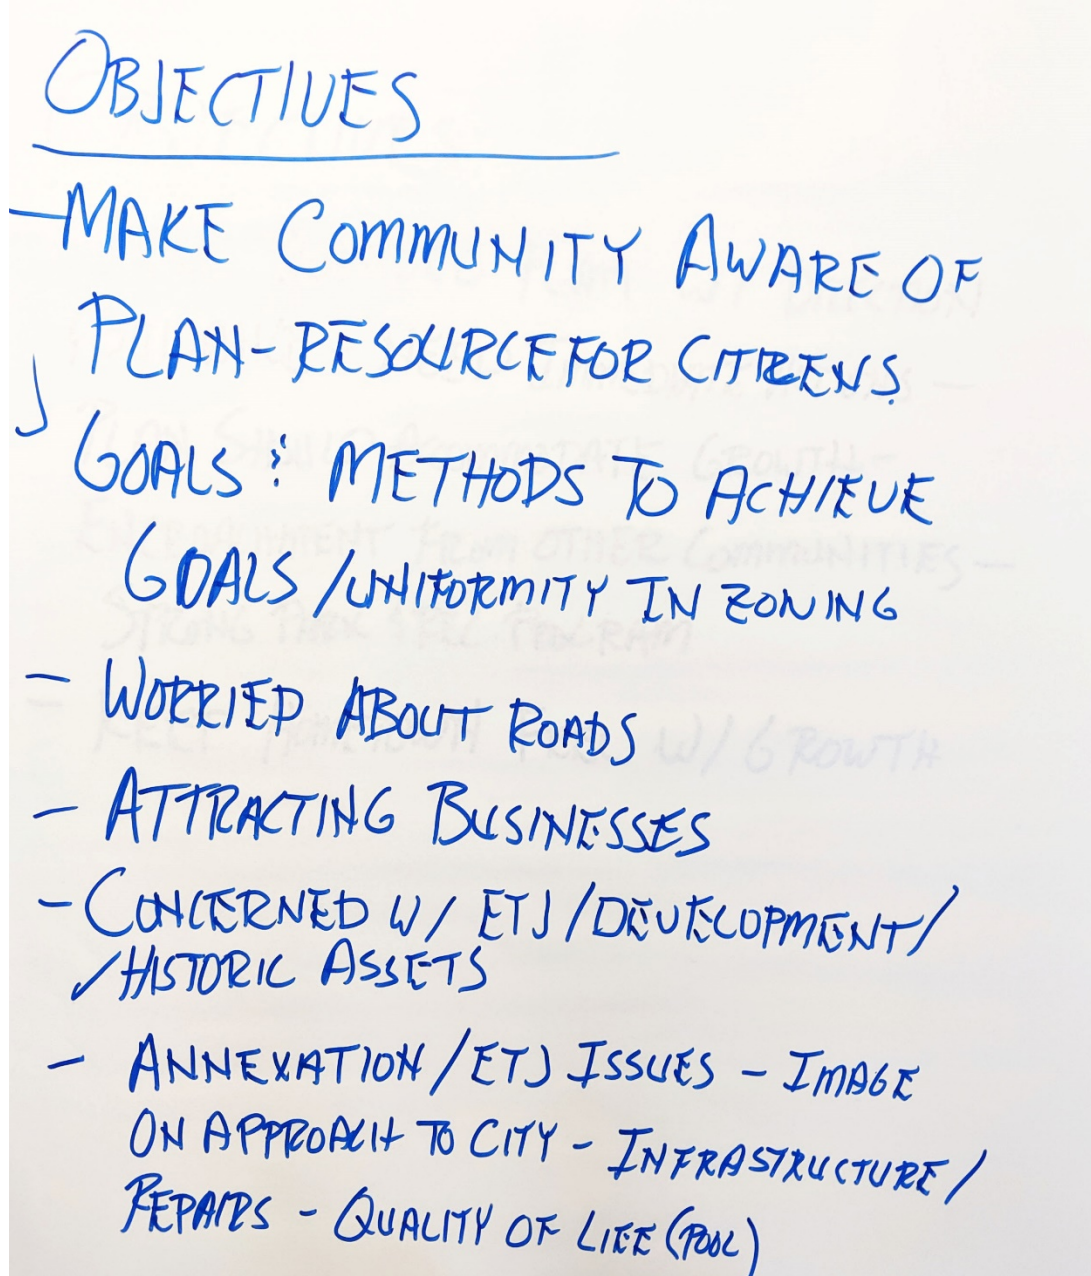 OBJECTIVES
- MAKE COMMUNITY AWARE OF
PLAN - RESOURCE FOR CITIZENS
GOALS & METHODS TO ACHIEVE
GOALS / UNIFORMITY IN ZONING
- WORRIED ABOUT ROADS
- ATTRACTING BUSINESSES
- CONCERNED W/ ETJ / DEVELOPMENT /
/ HISTORIC ASSETS
- ANNEXATION / ETJ ISSUES - IMAGE
ON APPROACH TO CITY - INFRASTRUCTURE /
REPAIRS - QUALITY OF LIFE (POOL)